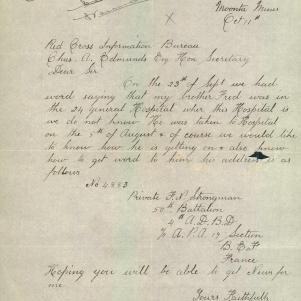 Moonta Mines
Oct 11th
Red Cross Information Bureau
Chas. A. Edmunds Esq Hon. Secretary
Dear Sir
On the 23rd of Sept we had
word saying that my brother Fred was in
the 24 general Hospital wher this Hospital is
we do not know Her was taken to Hospital
on the 5th of August & of course we would like
to know how he is getting on & also know
how to get word to him his address is as
follows
No 4883
Private F. P. Strongman
50th Battalion
4th A. D. B. D
% A. P. A. 17 Section
B. E. F
France
Hoping you will be able to get News for
me
Yours Faithfully